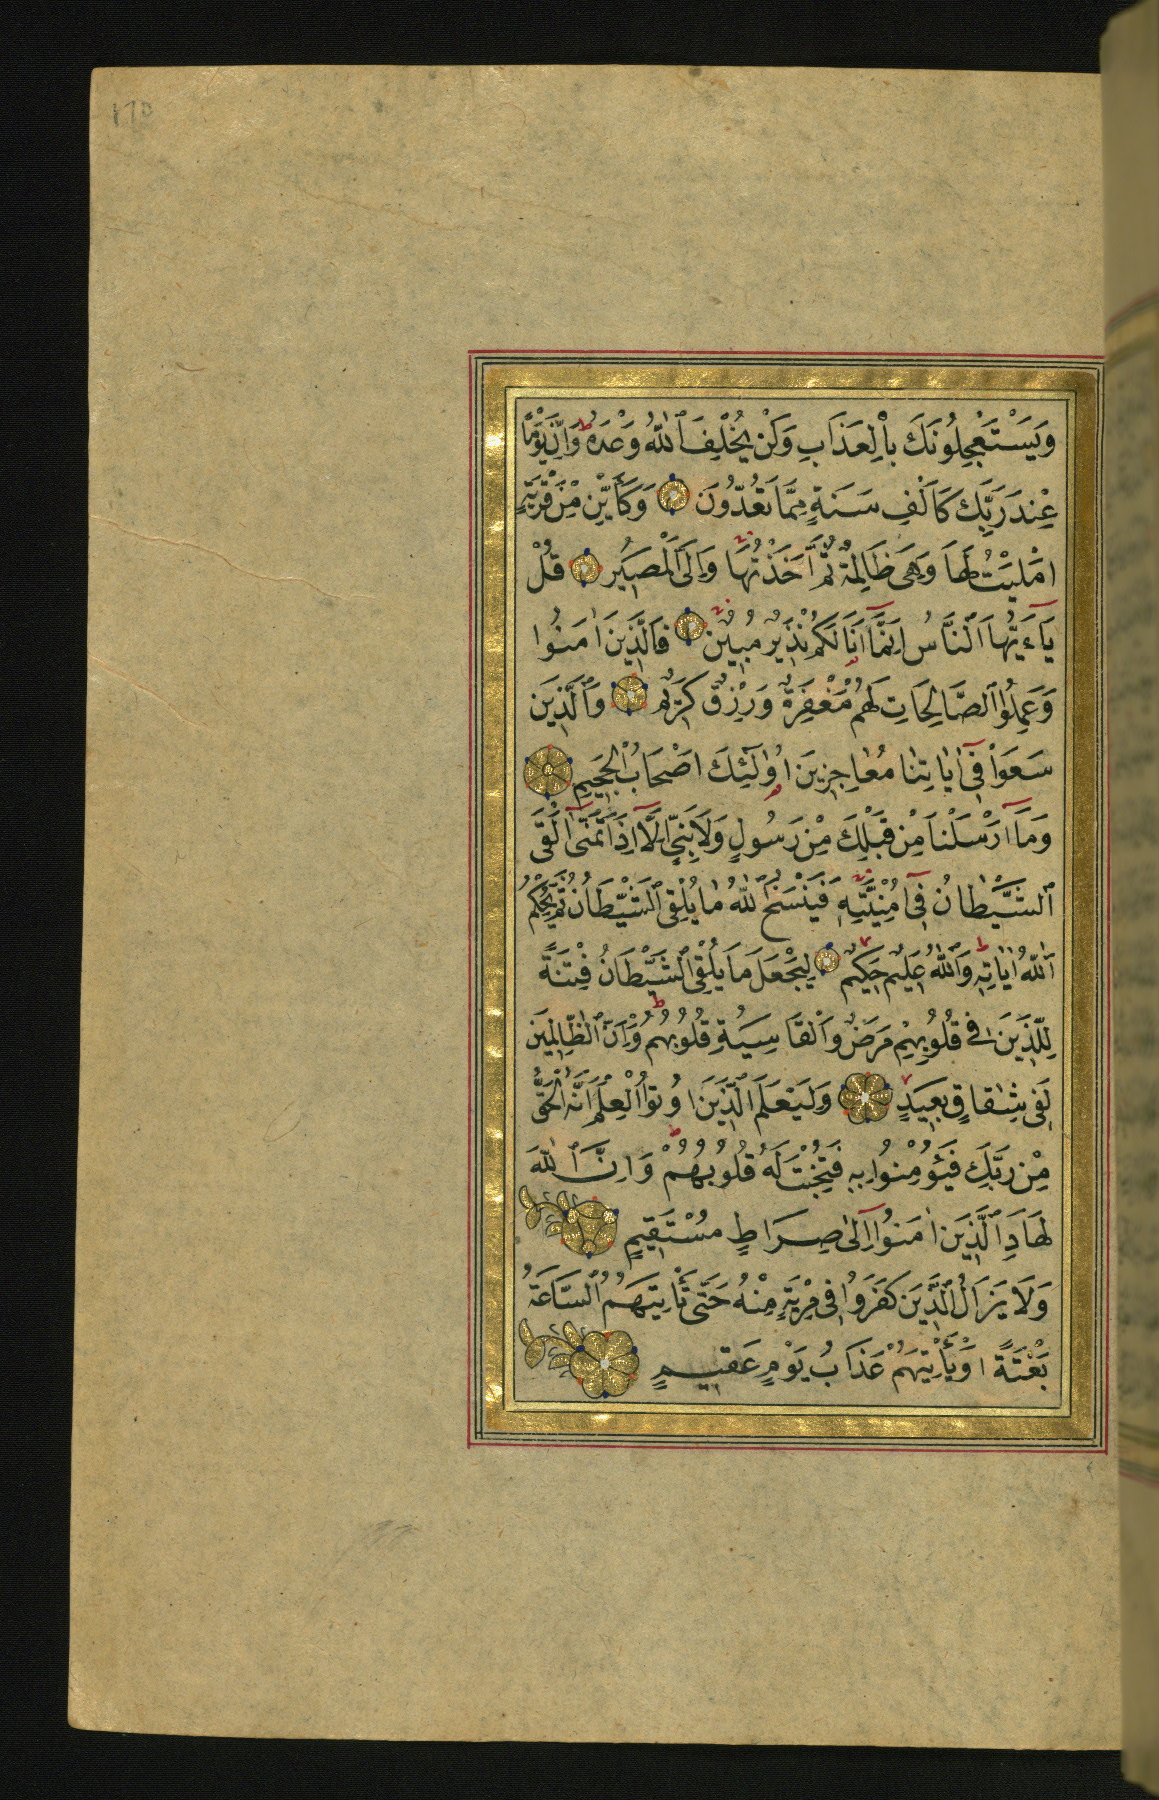 ١٦٥
وَيَسْتَعْجِلُونَكَ بِالْعَذَابِ وَلَنْ يُخْلِفَ ٱللّٰهُ وَعْدَهُ ط وَاِنَّ يَوْمًا
عِنْدَ رَبِّكَ كَاَلْفِ سَنَةٍ مِمَّا تَعُدُّونَ وَكَاَيِّنْ مِنْ قَرْيَةٍ
اَمْلَيْتُ لَهَا وَهِىَ ظَالِمَةٌ ثُمَّ اَخَذْتُهَا وَاِلَىَّ ٱلْمَصِيرُ قُلْ
يَٓاءَيُّهَا ٱلنَّاسُ اِنَّمَٓا اَنَا۬ لَكُمْ نَذِيرٌ مُبِينٌ فَالَّذِينَ اٰمَنُوا
وَعَمِلُوا ٱلصَّالِحَاتِ لَهُمْ مَغْفِرَةٌ وَرِزْقٌ كَرِيمٌ وَٱلَّذِينَ
سَعَوْا فِٓى اٰيَاتِنَا مُعَاجِزِينَ اُو۬لٰٓئِكَ اَصْحَابُ ٱلْجَحِيمِ
وَمَٓا اَرْسَلْنَا مِنْ قَبْلِكَ مِنْ رَسُولٍ وَلَا نَبِىٍّ اِلَّٓا اِذَا تَمَنّٰٓى اَلْقَى
ٱلشَّيْطَانُ فِٓى اُمْنِيَّتِهِ فَيَنْسَخُ ٱللّٰهُ مَا يُلْقِى ٱلشَّيْطَانُ ثُمَّ يُحْكِمُ
ٱللّٰهُ اٰيَاتِهِ ط وَٱللّٰهُ عَلِيمٌ حَكِيمٌ لِيَجْعَلَ مَا يُلْقِى ٱلشَّيْطَانُ فِتْنَةً
لِلَّذِينَ فِى قُلُوبِهِمْ مَرَضٌ وَٱلْقَاسِيَةِ قُلُوبُهُمْ ط وَاِنَّ ٱلظَّالِمِينَ
لَفِى شِقَاقٍ بَعِيدٍ وَلِيَعْلَمَ ٱلَّذِينَ اُوتُوا ٱلْعِلْمَ اَنَّهُ ٱلْحَقُّ
مِنْ رَبِّكَ فَيُؤْمِنُوا بِهِ فَتُخْبِتَ لَهُ قُلُوبُهُمْ ط وَاِنَّ ٱللّٰهَ
لَهَادِ ٱلَّذِينَ اٰمَنُٓوا اِلٰى صِرَاطٍ مُسْتَقِيمٍ
وَلَا يَزَالُ ٱلَّذِينَ كَفَرُوا فِى مِرْيَةٍ مِنْهُ حَتّٰى تَأْتِيَهُمُ ٱلسَّاعَةُ
بَغْتَةً اَوْ يَأْتِيَهُمْ عَذَابُ يَوْمٍ عَقِيمٍ